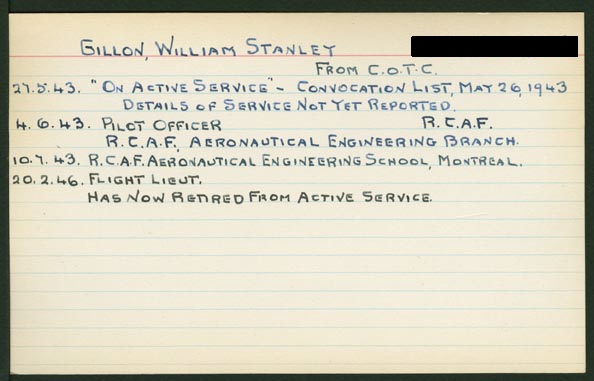 GILLON, WILLIAM STANLEY
FROM C.O.T.C.
27.5.43. "ON ACTIVE SERVICE" - CONVOCATION LIST, MAY 26, 1943
DETAILS OF SERVICE NOT YET REPORTED.
4.6.43. PILOT OFFICER R.C.A.F.
R.C.A.F., AERONAUTICAL ENGINEERING BRANCH.
10.7.43. R.C.A.F. AERONAUTICAL ENGINEERING SCHOOL, MONTREAL.
20.2.46. FLIGHT LIEUT.
HAS NOW RETIRED FROM ACTIVE SERVICE.